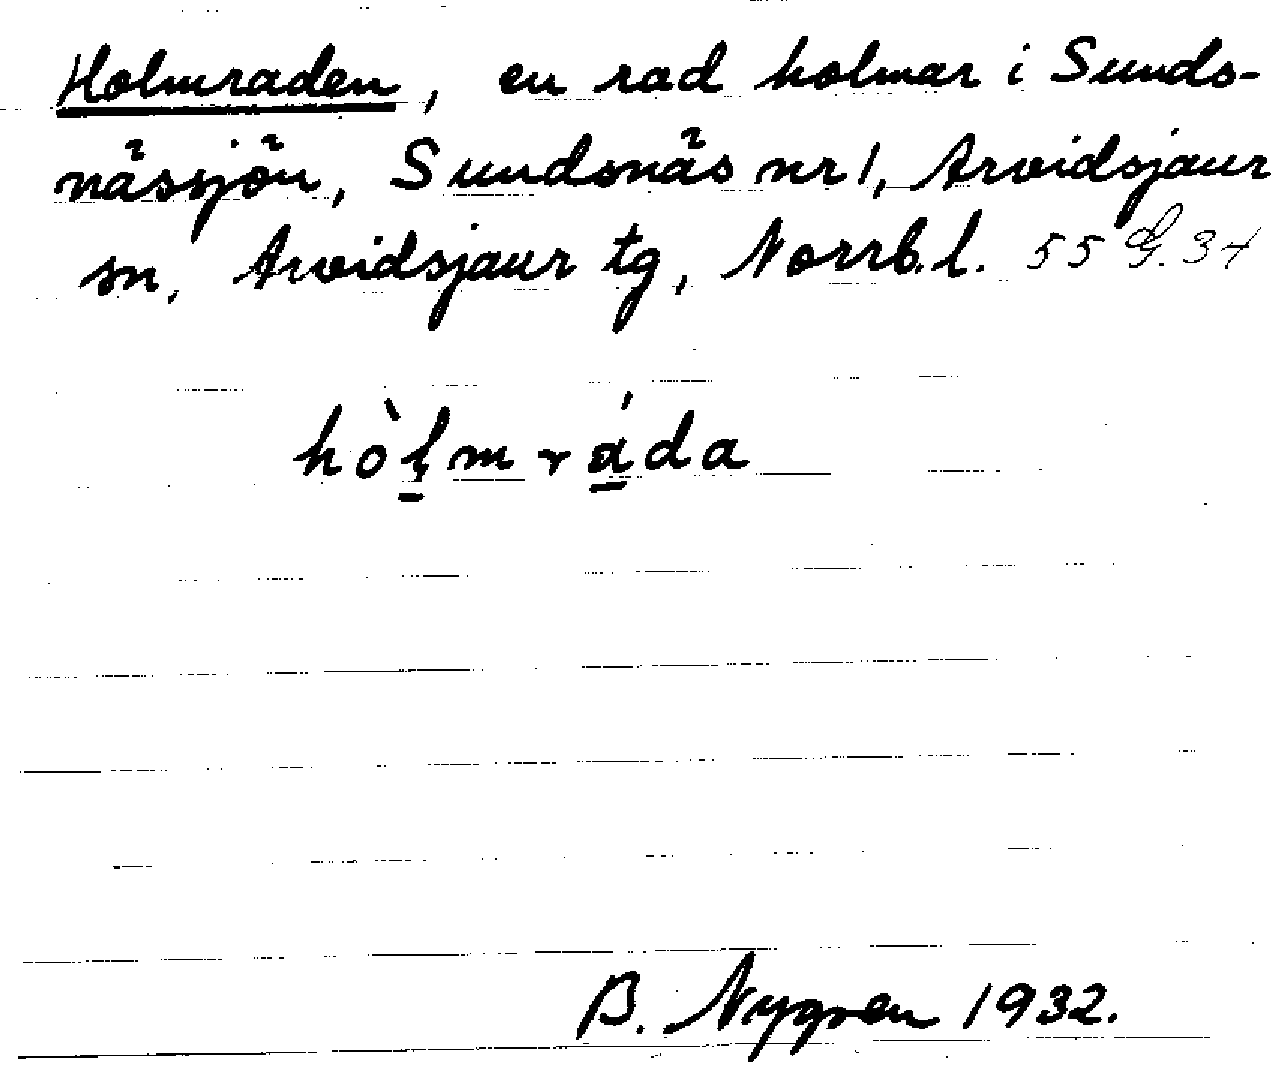 Holmraden, en rad holmar i Sunds-
nässjön, Sundsnäs nr 1, Arvidsjaur
sn, Arvidsjaur tg, Norrb. l. 55 G. 34
hòl̲mrá̲da
B. Nygren 1932.